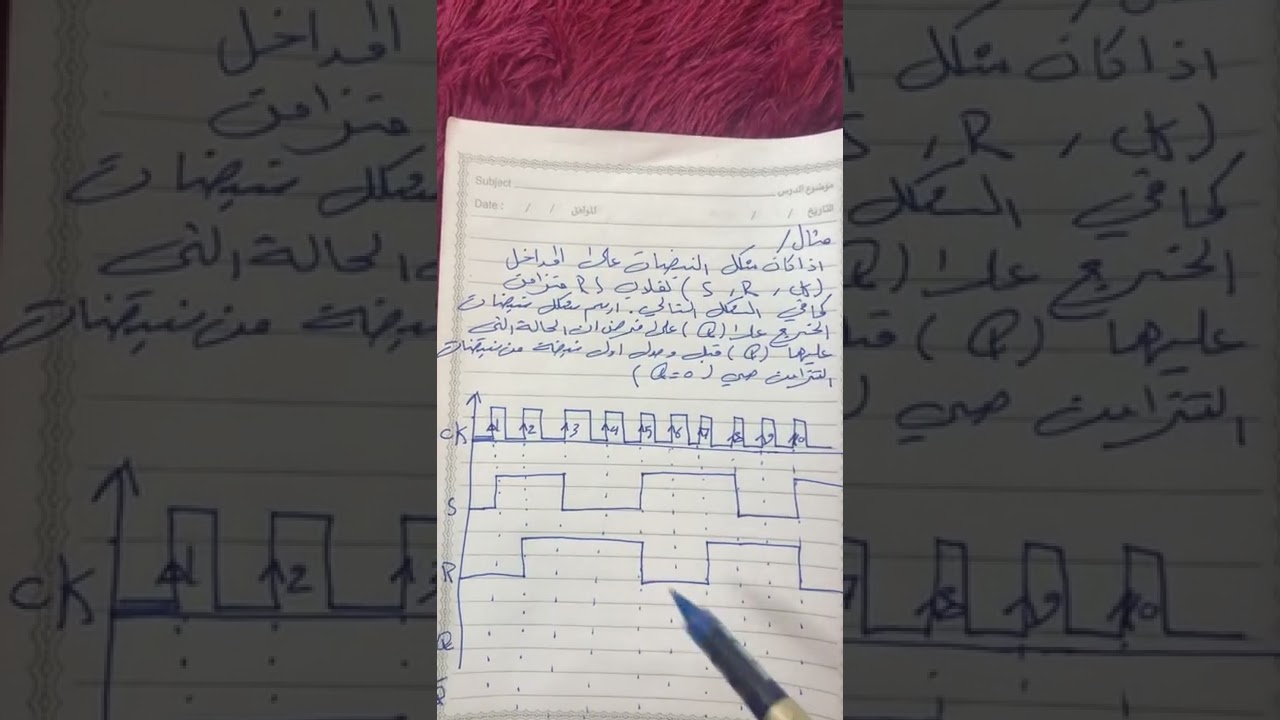 موضوع الدرس Subject
التاريخ / / الموافق Date : / /
مثال /
اذا كان شكل النبضات على المداخل
(S , R , CK) لقلاب RS متزامن
كما في الشكل التالي. ارسم شكل نبضات
الخرج على (Q) على فرض ان الحالة التي
عليها (Q) قبل وصول اول نبضة من نبضات
التزامن هي (Q=0)
CK 1 2 3 4 5 6 7 8 9 10
S
R
Q
Q̅